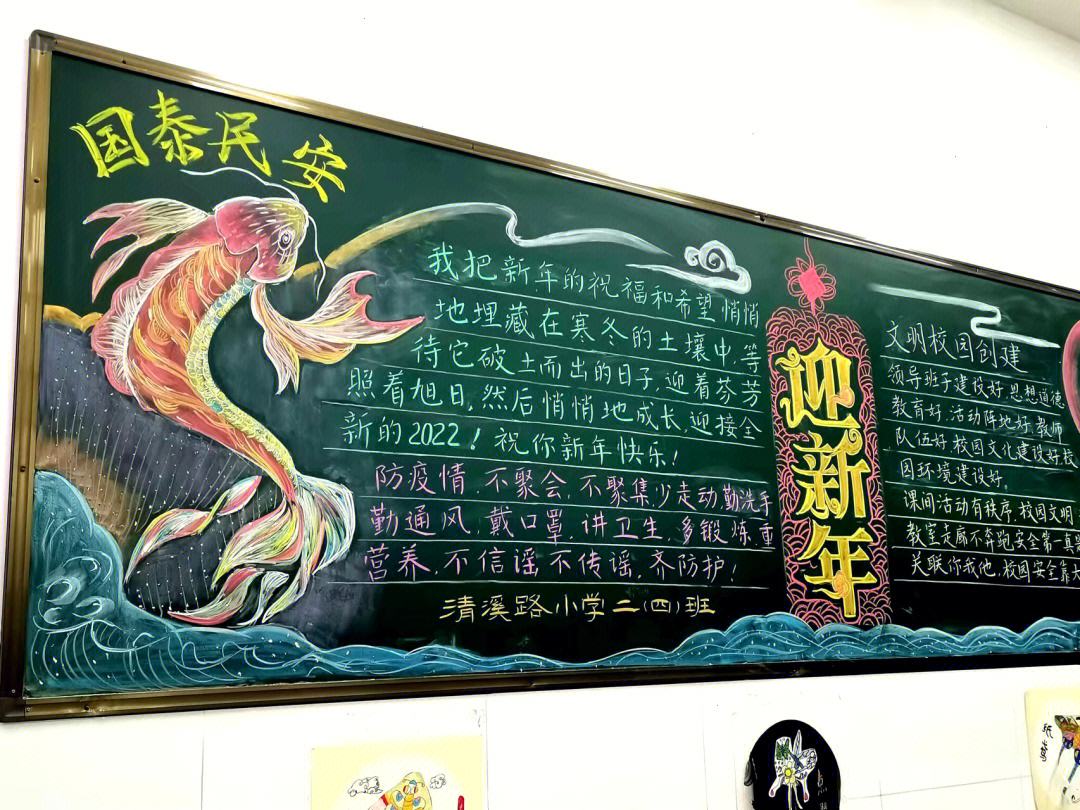 国泰民安
我把新年的祝福和希望悄悄
地埋藏在寒冬的土壤中,等
待它破土而出的日子,迎着芬芳
照着旭日,然后悄悄地成长,迎接全
新的2022!祝你新年快乐!
防疫情,不聚会,不聚集少走动,勤洗手
勤通风,戴口罩,讲卫生,多锻炼,重
营养,不信谣不传谣,齐防护!
清溪路小学二(四)班
迎新年
文明校园创建
领导班子建设好,思想道德
教育好,活动阵地好,教师
队伍好,校园文化建设好,校
园环境建设好。
课间活动有秩序,校园文明
教室走廊不奔跑安全第一真
关联你我他,校园安全靠大